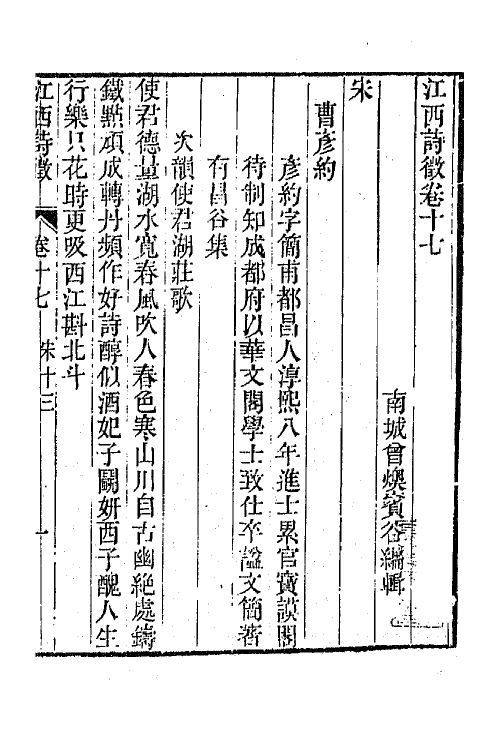 江西詩徵卷十七
南城曾燠賓谷編輯
宋
曹彥約
彥約字簡甫都昌人淳熙八年進士累官寶謨閣
待制知成都府以華文閣學士致仕卒諡文簡著
有昌谷集
次韻使君湖莊歌
使君德量湖水寬春風吹人春色寒山川自古幽絕處鑄
鐵點頑成轉丹頻作好詩醇似酒妃子鬭妍西子醜人生
行樂只花時更吸西江斟北斗
江西詩徵 卷十七 宋十三 一